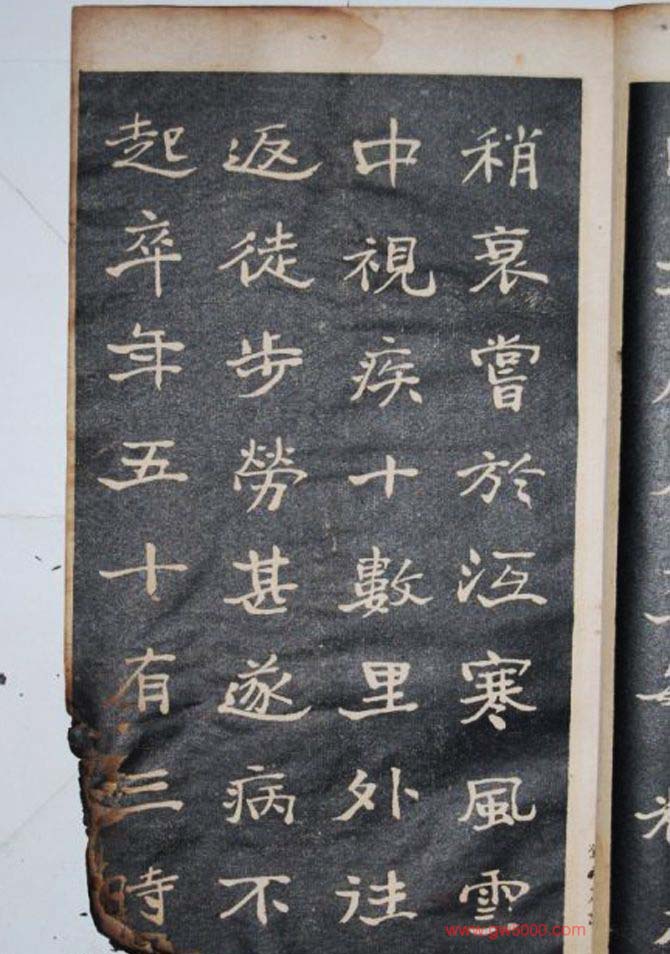 稍衰嘗於沍寒風雪
中視疾十數里外往
返徒步勞甚遂病不
起卒年五十有三時